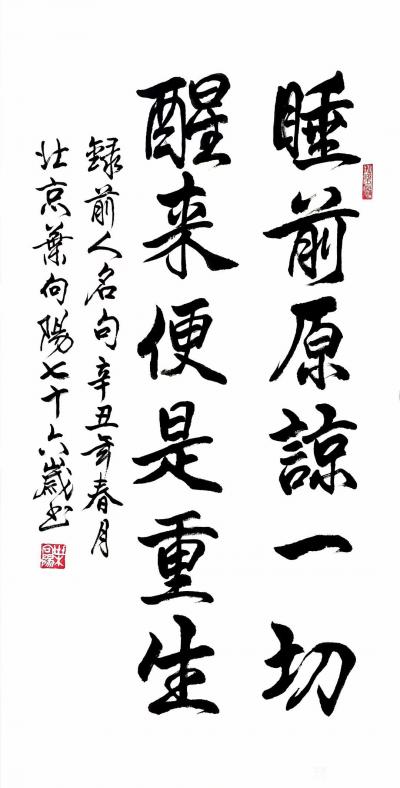 睡前原諒一切
醒来便是重生
録前人名句辛丑年春月
北京葉向陽七十六歲书